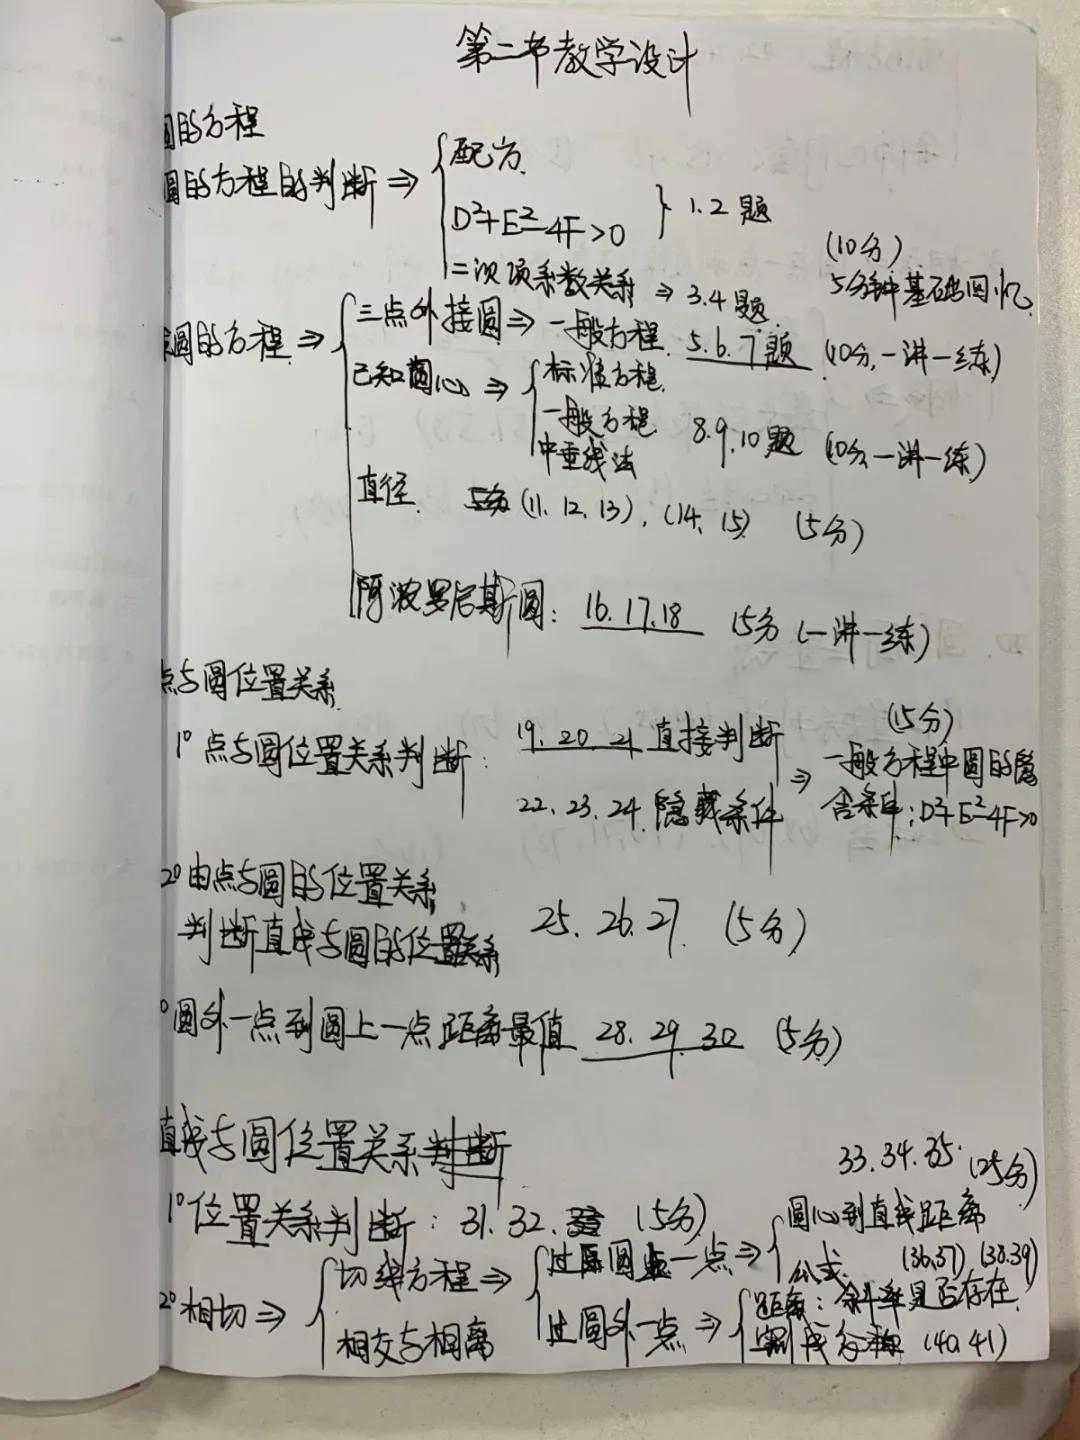 第二节教学设计
圆的方程
圆的方程的判断 ⇒ { 配方
D²+E²-4F>0 } 1.2题
二次项系数关系 ⇒ 3.4题
(10分)
5分钟基础回忆
圆的方程 ⇒ { 三点外接圆 ⇒ 一般方程 5.6.7题 (10分,一讲一练)
已知圆心 ⇒ { 标准方程
一般方程
中垂线法 8.9.10题 (10分一讲一练)
直径 (11、12、13),(14、15) (5分)
阿波罗尼斯圆: 16.17.18 15分(一讲一练)
点与圆位置关系
1° 点与圆位置关系判断: 19.20.21 直接判断
22.23.24.隐藏条件 ⇒ (15分)
一般方程中圆的隐
含条件:D²+E²-4F>0
2° 由点与圆的位置关系
判断直线与圆的位置关系 25.26.27. (5分)
° 圆外一点到圆上一点距离最值 28.29.30 (5分)
直线与圆位置关系判断
1° 位置关系判断: 31.32. (5分)
33.34.35. (25分)
2° 相切 ⇒ { 切线方程 ⇒ { 过圆上一点 ⇒ { 圆心到直线距离
公式 (36.37) (38.39)
过圆外一点 ⇒ { 距离: 斜率是否存在
(40.41)
相交与相离